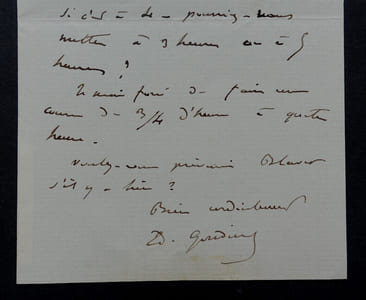 si c'est à 4 - pourriez-vous
mettre à 3 heures ou à 5
heures ?
Je suis forcé de faire un
cours de 3/4 d'heure à quatre
heures.
Voulez-vous prévenir
s'il y a lieu ?
Bien cordialement
D.